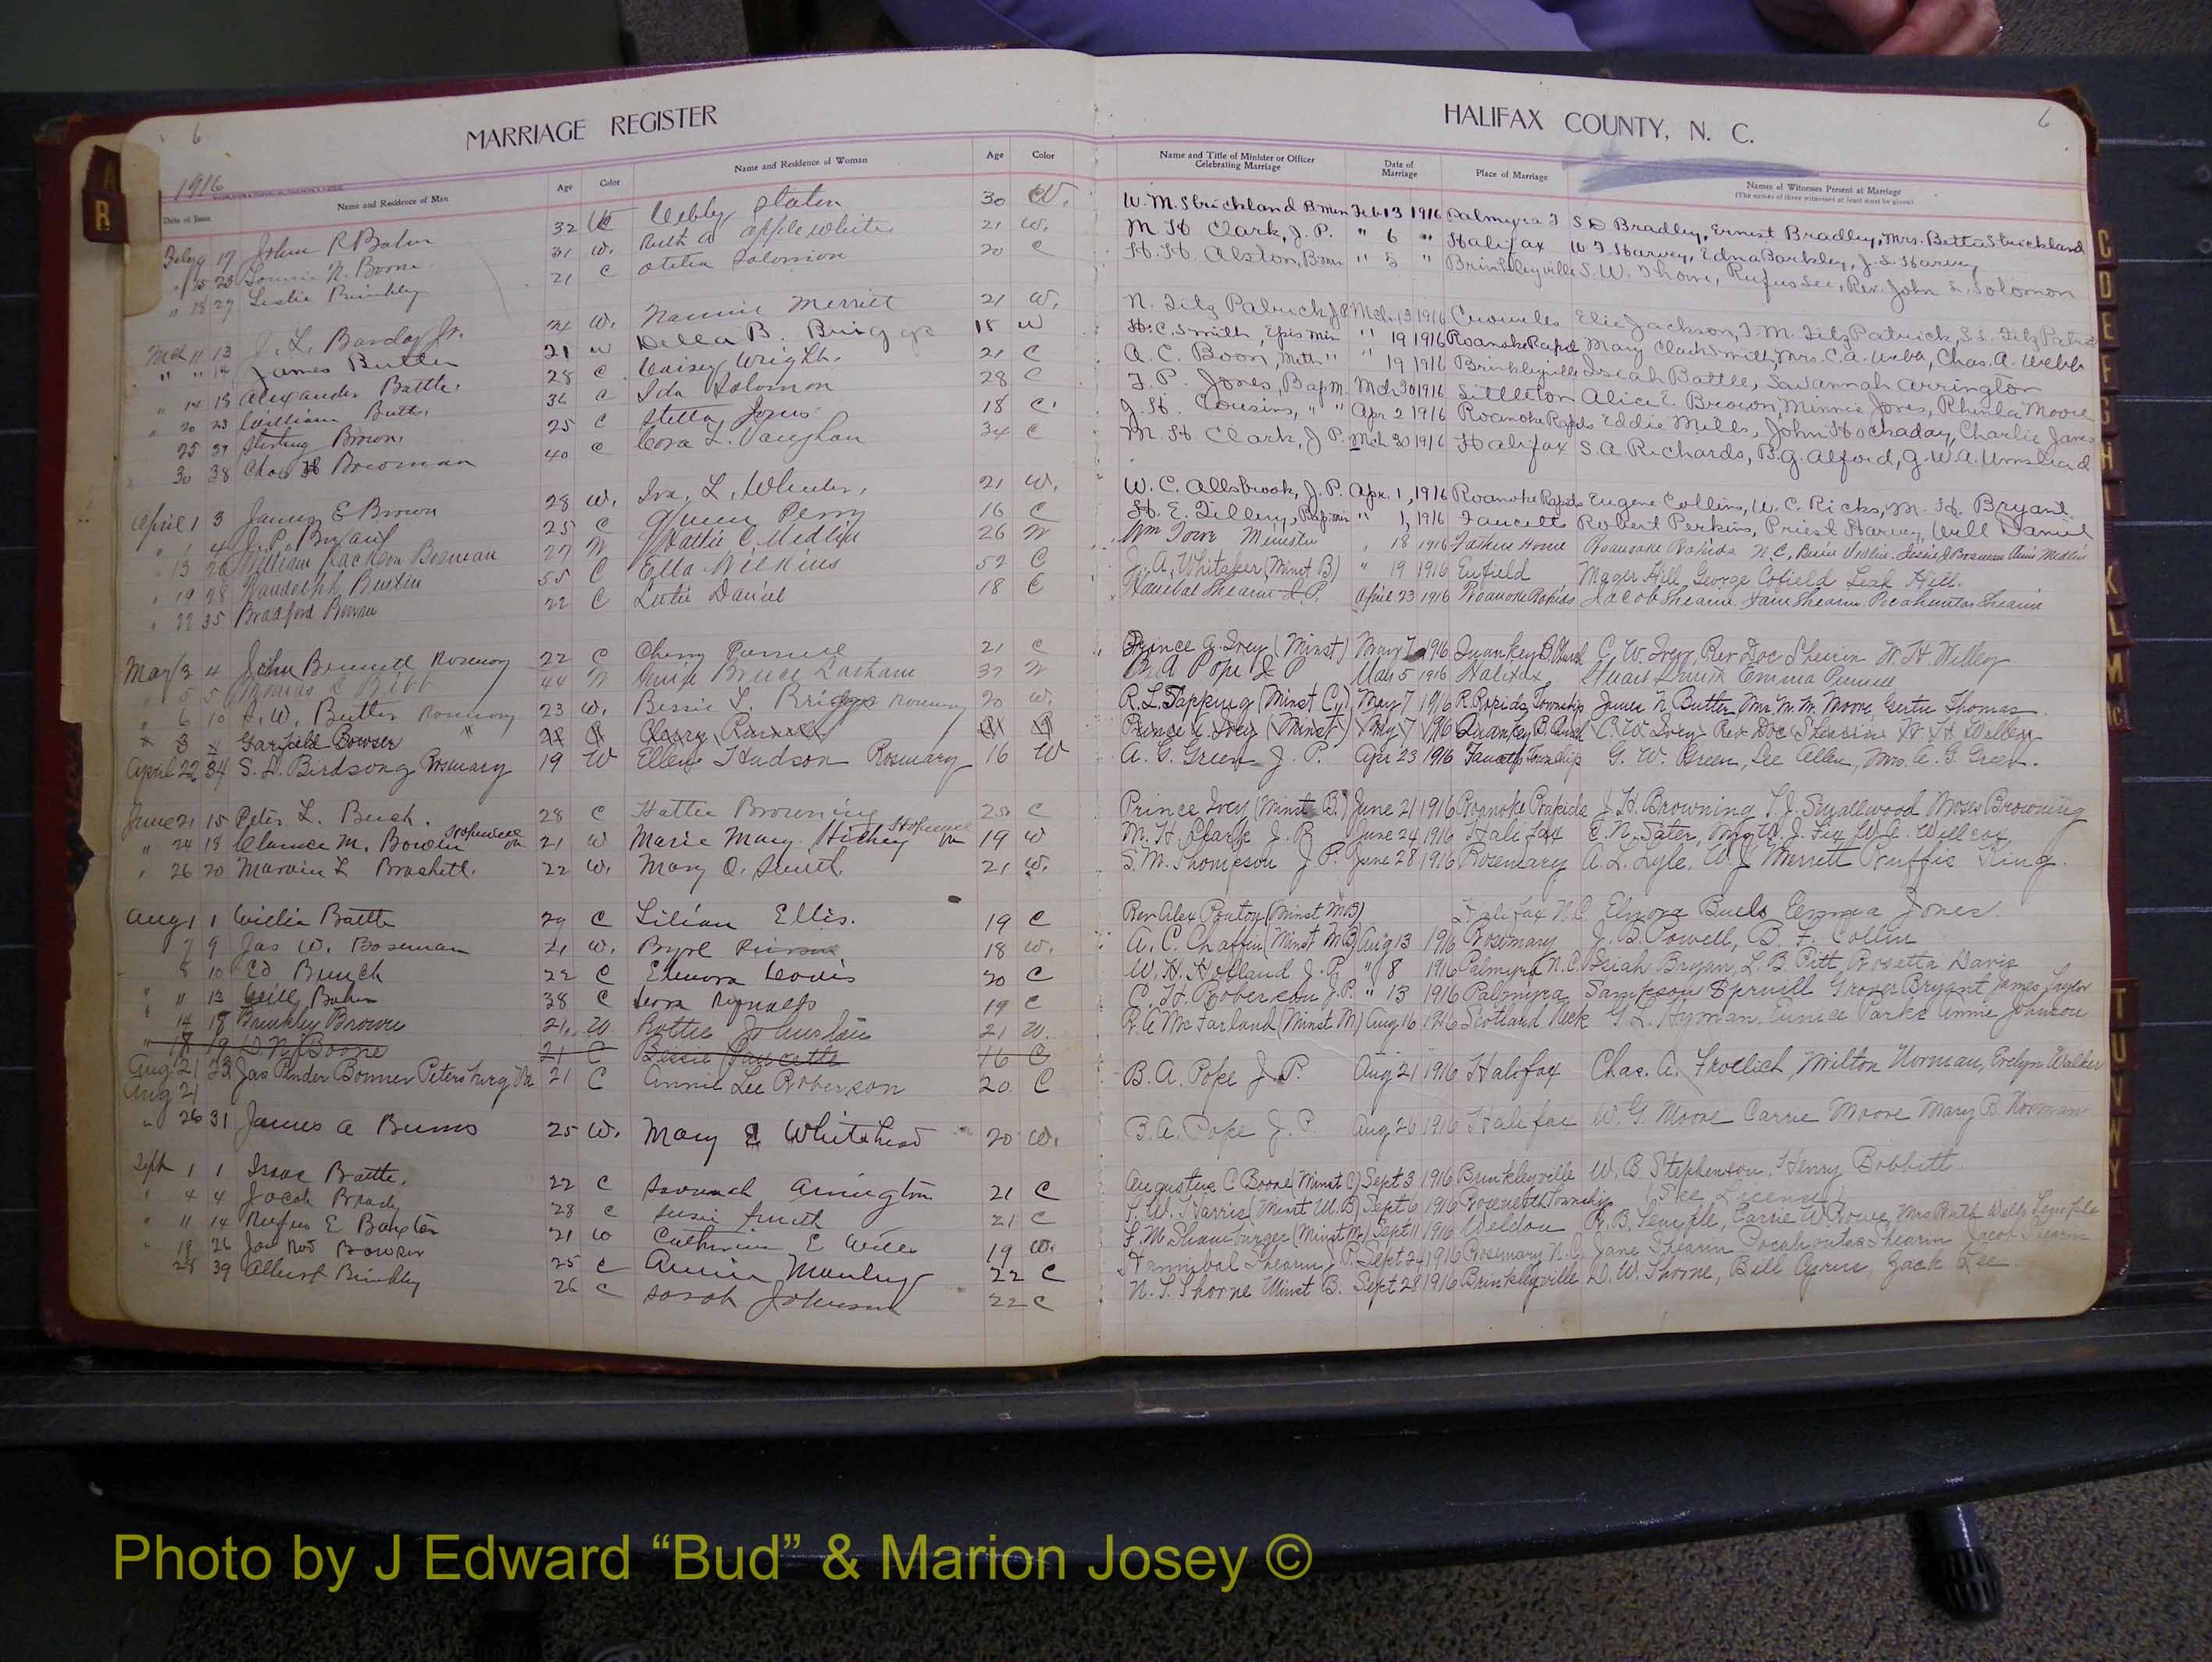 6
MARRIAGE REGISTER
1916
Date of Issue Name and Residence of Man Age Color Name and Residence of Woman Age Color
17 John R Baker 32 Staton 30 W.
23 N. Boone 31 W. Ruth a applewhite 21 W.
18 27 Leslie Brinkley 21 C Otelia Solomon 20 C
11 13 J. L. Jr. W. Nannie Merritt 21 W.
" " 14 James Butler 21 W Della B. 18 W
" 14 18 Alexander Battle. 28 C Wright. 21 C
" 20 23 William C Ida Solomon 28 C
25 37 Sterling Brown, 25 C Stella Jones 18 C.
30 38 Chas H Bowman 40 C Cora L. Vaughan 34 C
April 1 3 James E Brown 28 W. Iva L. Wheeler, 21 W.
" 1 4 J. P. Bryant 25 C Queen Perry 16 C
" 13 William Jackson Boseman 27 W Hattie C. Medlin 26 W
" 19 28 Randolph Burton 55 C Ella Wilkins 52 C
" 22 35 Bradford 22 C Lutie Daniel 18 C
May 3 4 John Bennett Rosemary 22 C Cherry Purnell 21 C
5 5 Thomas C Bibb 44 W Bruce 37 W
" 6 10 J. W. Butler Rosemary 23 W. Bessie L. Bridges Rosemary 20 W.
3 Garfield Bowser "
April 22 34 S. D. Birdsong Rosemary 19 W Ellen Hudson Rosemary 16 W
June 21 15 Peter L. 28 C Hattie Browning C
" 24 18 Clarence M. Hopewell Va 21 W Marie Mary Hickey Hopewell Va 19 W
" 26 20 Marvin L 22 W. Mary O. Smith. 21 W.
Aug 1 1 Willie Battle 29 C Lilian Ellis. 19 C
7 9 Jas W. Boseman 21 W. Byrl Pierson 18 W.
8 10 Ed Bunch 22 C Elenora 20 C
" 11 13 Will Baker 38 C 19 C
" 14 18 Brinkley Brown 21. W. Johnston 21 W.
" 17 19 D. N. Boone 21 C Bessie Faucette 16 C
Aug 21 23 Jas Pender Bonner Petersburg Va 21 C Annie Lee Roberson 20 C
Aug 21
" 26 31 James A Burns 25 W. Mary E Whitehead 20 W.
Sept 1 1 Isaac Battle. 22 C Savanah Arrington 21 C
" 4 4 Jacob Brady 28 C Susie Smith 21 C
" 11 14 Rufus E Baxter 21 W Catherine E 19 W.
" 19 26 Bowser 25 C Annie Manley 22 C
28 39 Albert Brinkley 26 C Sarah Johnson 22 C
HALIFAX COUNTY, N. C.
6
Name and Title of Minister or Officer Celebrating Marriage Date of Marriage Place of Marriage Names of Witnesses Present at Marriage
(The names of three witnesses at least must be given)
W. M. Strickland B. Min Feb 13 1916 Palmyra T S. D Bradley, Ernest Bradley, Mrs. Betta Strickland
M H Clark, J. P. " 6 " Halifax W. F. Harvey, Edna Barkley, J. L. Harvey
H. H. Alston, B.Min " 5 " Brinkleyville S. W. Thorne, Rufus Lee, Rev. John L. Solomon
N. Fitz Patrick, J.P. Mch. 13 1916 Elie Jackson, T. M. Fitz Patrick, S. L. Fitz Patrick
H. C. Smith, Epis Min " 19 1916 Roanoke Rapid Mary Clark Smith, Mrs. C. A. Webb, Chas. A. Webb
A. C. Boon, Meth " " 19 1916 Brinkleyville Isaiah Battle, Savannah Arrington
T. P. Jones, Bap M. Mch 30 1916 Littleton Alice E. Brown, Minnie Jones, Rhinta Moore
J. H. Cousins, " " Apr 2 1916 Roanoke Rapids Eddie Mills, John Hockaday, Charlie James
M. H Clark, J P. Mch 30 1916 Halifax S. A Richards, B. G. Alford, G. W. A.
W. C. Allsbrook, J. P. Apr. 1, 1916 Roanoke Rapids Eugene Collins, W. C. Ricks, M. H. Bryant
H. E. Tillery, Bap. Min " 1, 1916 Faucetts Robert Perkins, Priest Harvey, Will Daniel
Wm Towe Minister " 18 1916 Fathers Home Roanoke Rapids N.C.
J. A. Whitaker (Minst B) " 19 1916 Enfield Mager Hill George Cofield Leah Hill.
Hanibal Shearin J. P. April 23 1916 Roanoke Rapids Jacob Shearin, Jane Shearin Pocahontas Shearin
Prince G. Ivey (Minst) May 7 1916 Quankey B. Church C. W. Ivey, Rev Doc Shearin W. H. Willey
B A Pope J P May 5 1916 Halifax Stuart Smith Emma Purnell
R. L. Topping (Minst C.) May 7 1916 R. Rapids Township James N Butler, Mrs. M. M. Moore, Gertie Thomas
Prince G. Ivey (Minst) May 7 1916 Quankey B. Church C. W. Ivey Rev Doc Shearin W. H. Willey
A. G. Green J. P. Apr 23 1916 Faucetts Township G. W. Green, Lee Allen, Mrs. A. G. Green.
Prince Ivey (Minst B.) June 21 1916 Roanoke Rapids J. H. Browning T. J. Smallwood Moses Browning
M. H. Clark J. P. June 24 1916 Halifax E. N. W. J. Fix, W. C. Willcox
S. M. Thompson J. P. June 28 1916 Rosemary A. L. Lyle. W. J Merritt Ruffis King.
Rev Alex (Minst M B) Halifax N.C. Elnora Emma Jones.
A. C. Chaffin (Minst M B) Aug 13 1916 Rosemary J. B. Powell, B. F. Collin
W. H. Holland J. P. " 8 1916 Palmyra N. C. Isiah Bryan, L. B. Pitt Rosetta Davis
C. H. Roberson J. P. " 13 1916 Palmyra Sampson Spruill Grover Bryant James Taylor
R. A McFarland (Minst M) Aug 16 1916 Scotland Neck G. L. Hyman. Eunice Parks Annie Johnson
B. A. Pope J. P. Aug 21 1916 Halifax Chas. A. Froelich, Milton Norman, Evelyn Walker
B. A. Pope J. P. Aug 26 1916 Halifax W. G. Moore Carrie Moore Mary B. Norman
Augustus C Boone (Minst C) Sept 3 1916 Brinkleyville W. B. Stephenson, Henry Bobbitt
Harris (Minst M. B) Sept 6 1916 Roseneath Township (See License)
F. M. Shamburger (Minst M.) Sept 11 1916 Weldon R. B. Semple, Carrie W Rowe, Mrs Ruth Wells Semple
Hannibal Shearin J. P. Sept 24 1916 Rosemary N.C. Jane Shearin Pocahontas Shearin Jacob Shearin
N. T. Thorne Minst B. Sept 28 1916 Brinkleyville D. W. Thorne, Bill Jack Lee
B
C
D
E
F
G
H
I
K
L
M
Mc
T
U
N
W
Y
Photo by J Edward “Bud” & Marion Josey ©